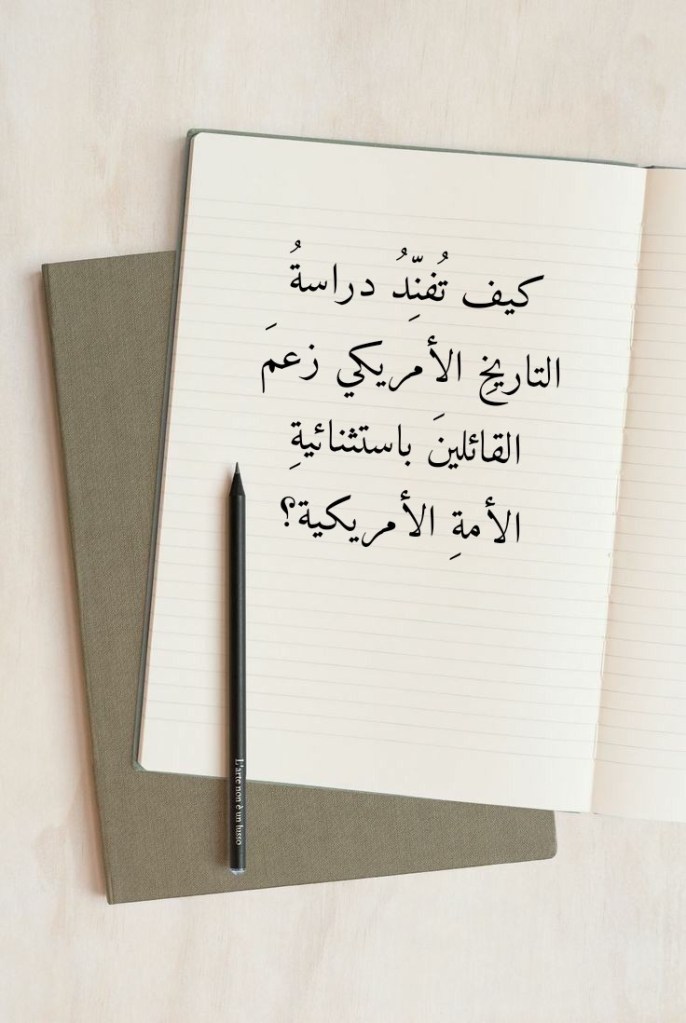 كيف تُفنِّدُ دراسةُ
التاريخِ الأمريكي زعمَ
القائلينَ باستثنائيةِ
الأمةِ الأمريكية؟
L'arte non è un lusso